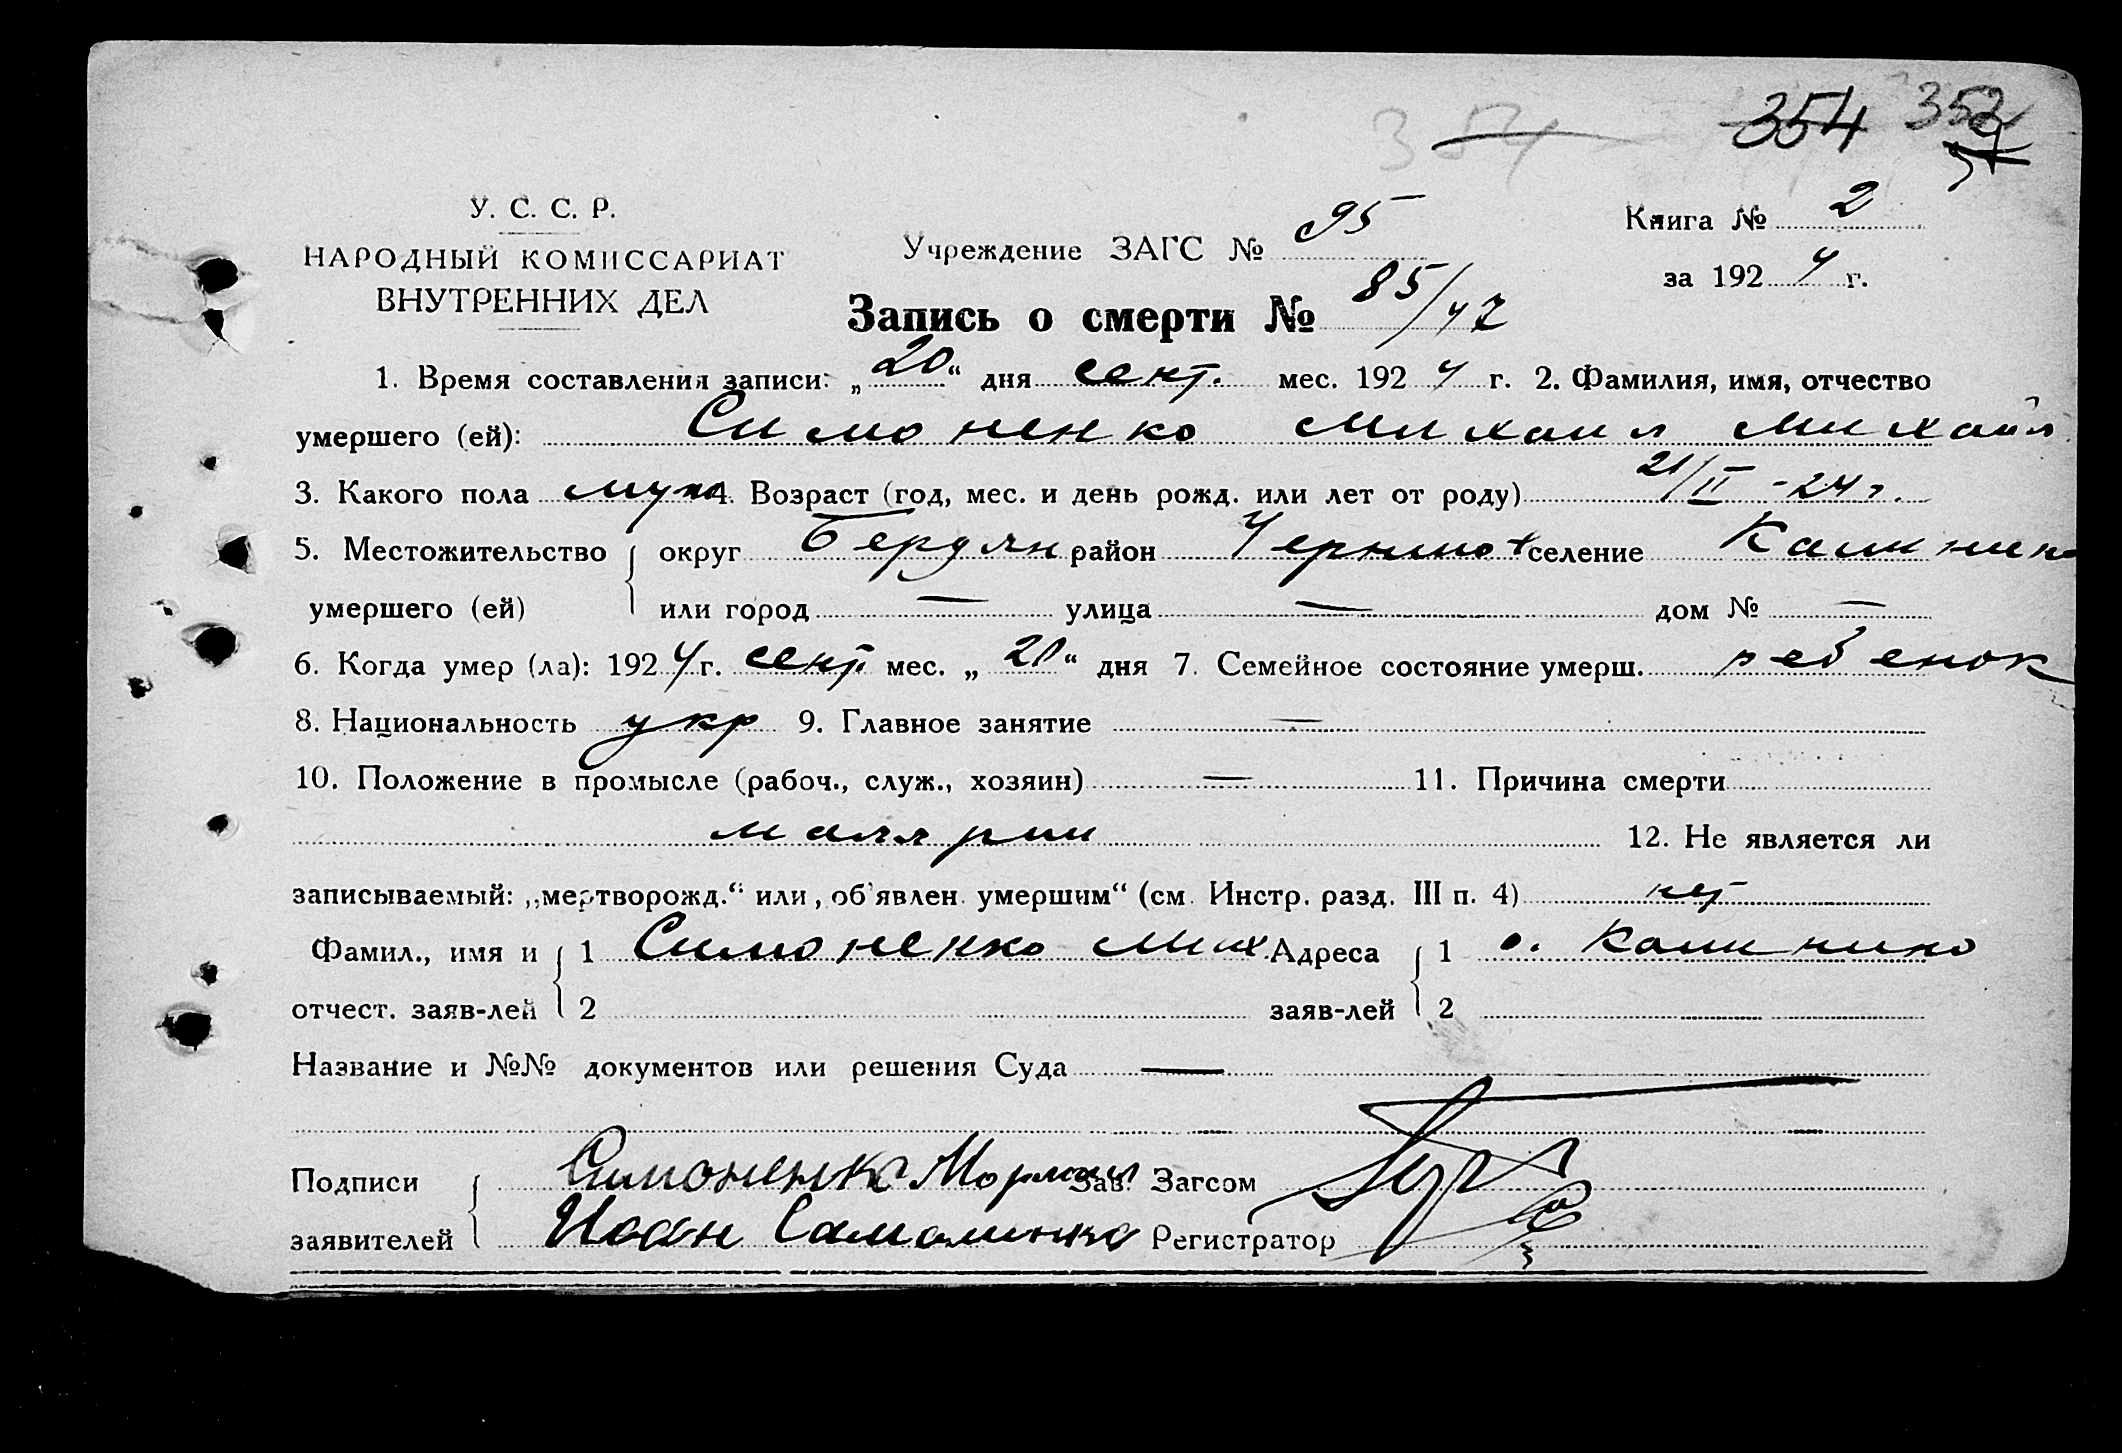 354 354 352
У. С. С. Р.
НАРОДНЫЙ КОМИССАРИАТ
ВНУТРЕННИХ ДЕЛ
Учреждение ЗАГС № 95
Книга № 2
за 1924 г.
Запись о смерти № 85/42
1. Время составления записи: „20“ дня сент. мес. 1924 г. 2. Фамилия, имя, отчество
умершего (ей): Симоненко Михаил Михайл
3. Какого пола муж 4. Возраст (год, мес. и день рожд. или лет от роду) 21/II - 24 г.
5. Местожительство округ Бердян район селение
умершего (ей) или город — улица — дом № —
6. Когда умер (ла): 1924 г. сент. мес. „20“ дня 7. Семейное состояние умерш. ребенок
8. Национальность укр 9. Главное занятие —
10. Положение в промысле (рабоч., служ., хозяин) — 11. Причина смерти
малярии 12. Не является ли
записываемый: „мертворожд.“ или „об'явлен умершим“ (см. Инстр. разд. III п. 4) нет
Фамил., имя и 1 Симоненко Мих. Адреса 1 с.
отчест. заяв-лей 2 заяв-лей 2
Название и №№ документов или решения Суда —
Подписи Симоненко Зав. Загсом
заявителей Иван Регистратор